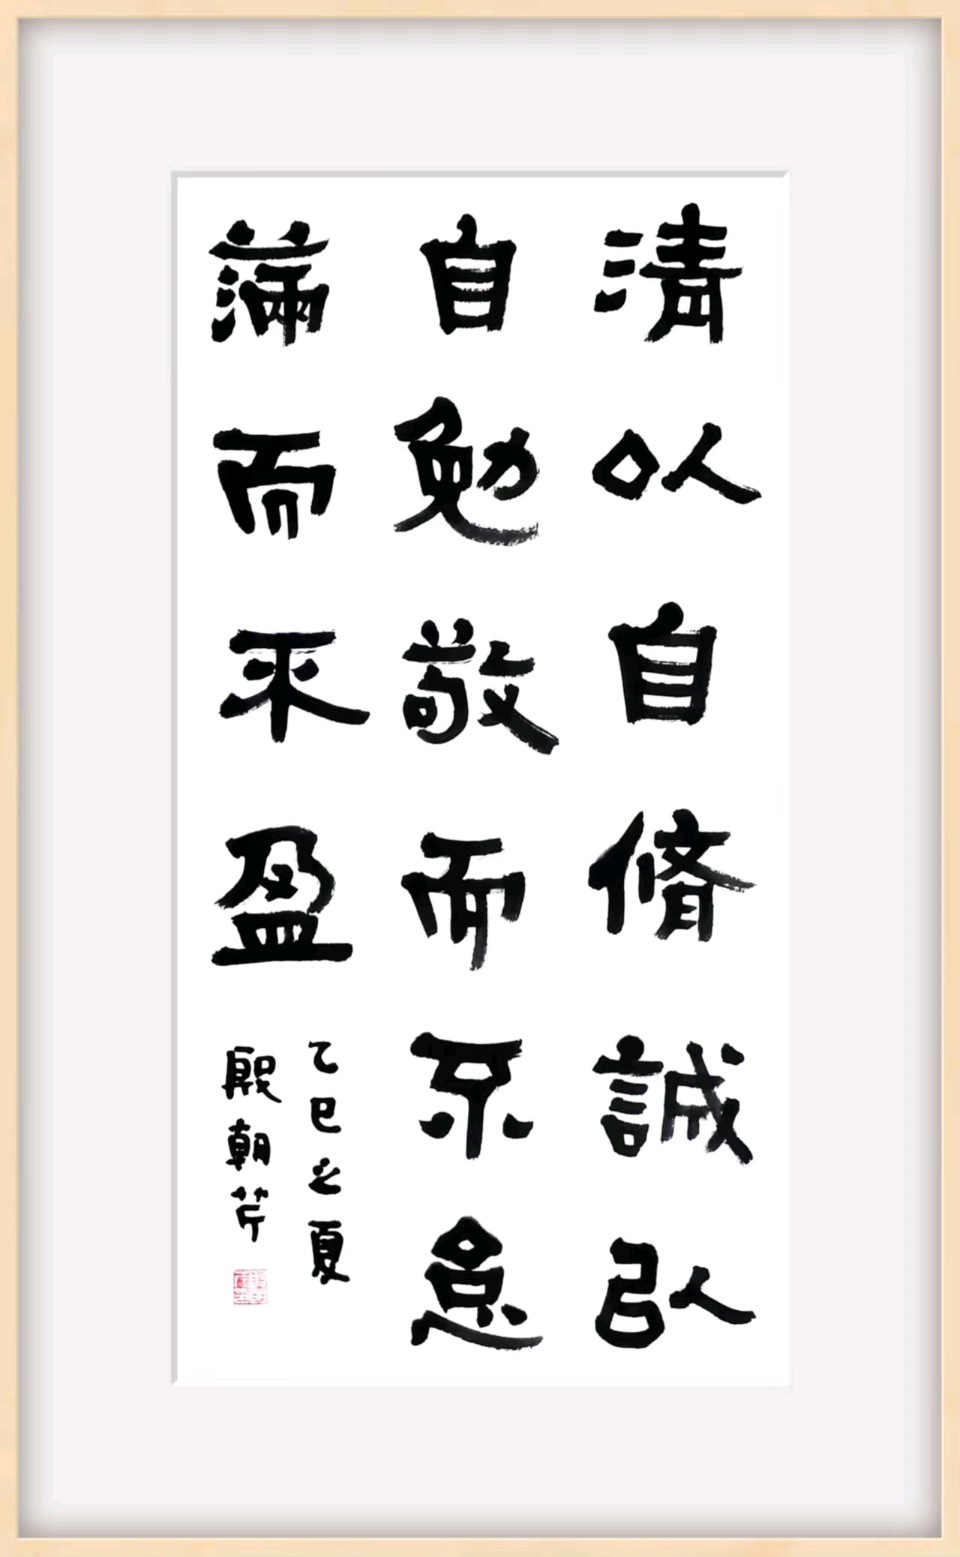 清以自脩誠以
自勉敬而不怠
滿而不盈
乙巳之夏
殷朝芹